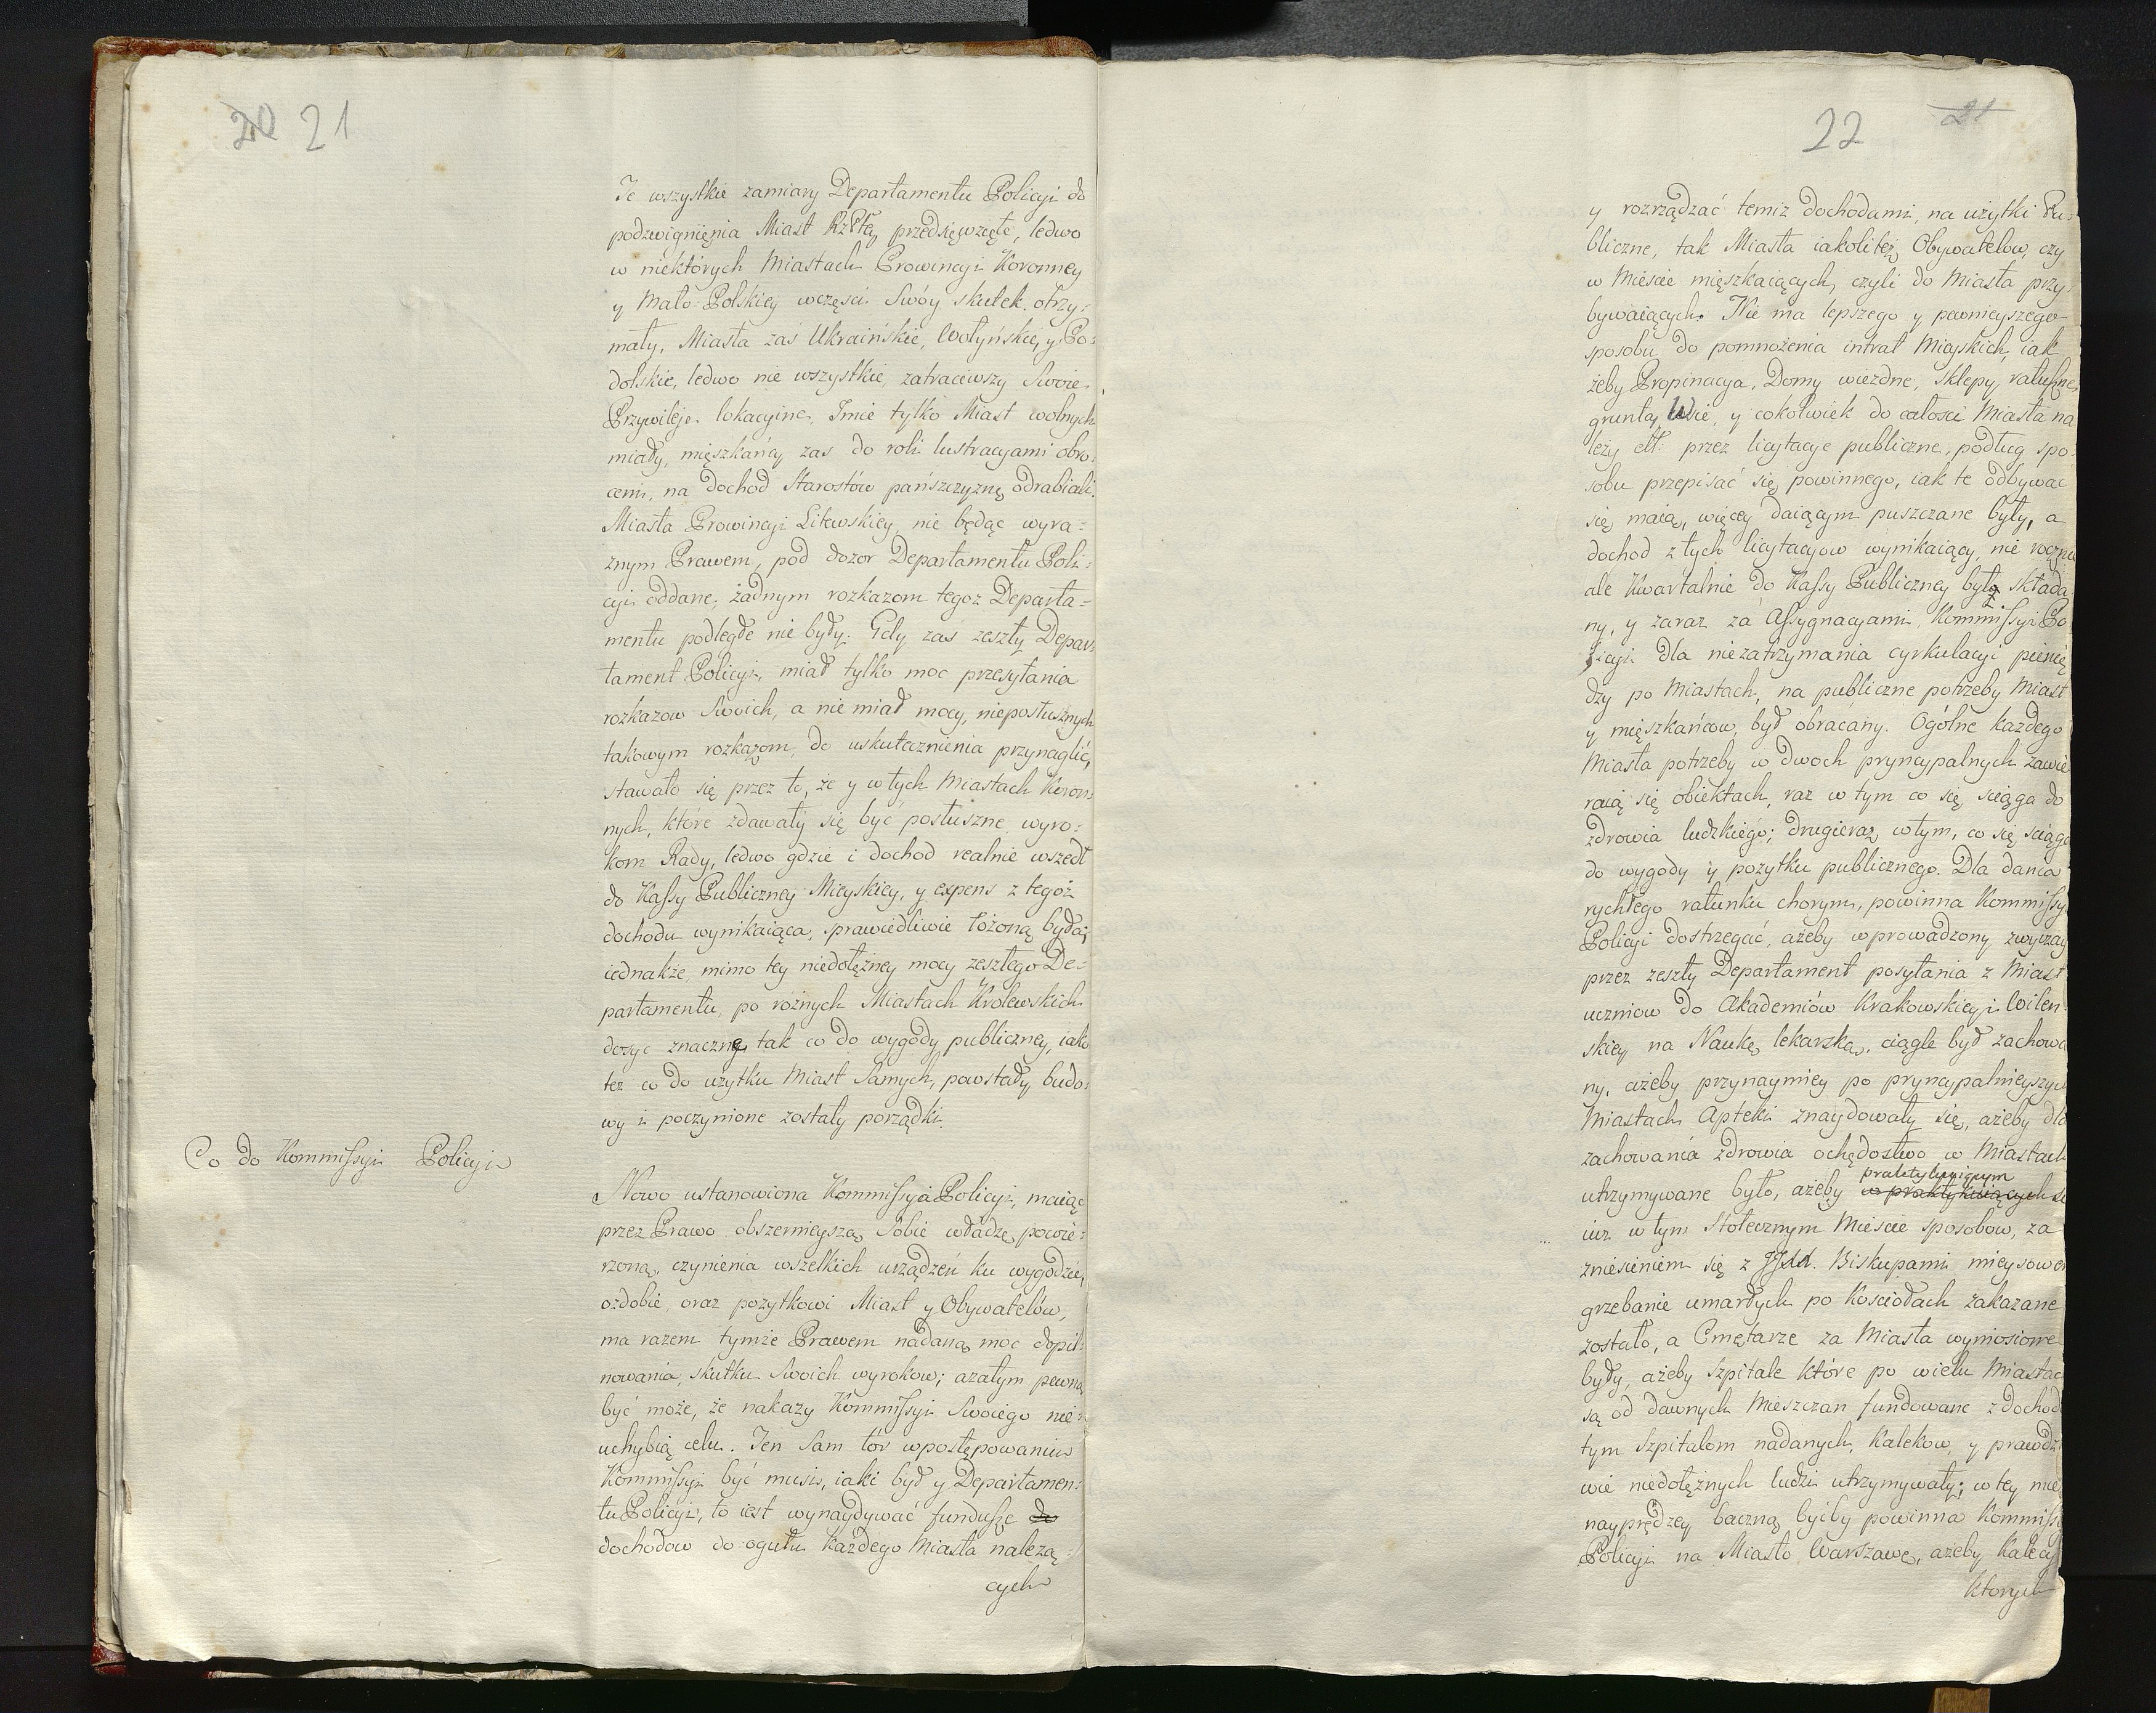 20 21
Te wszystkie zamiary Departamentu Policyi do
podzwignięnia Miast RzPltey przedsięwzięte, ledwo
w niektórych Miastach Prowincyi Koronney
y Mało-Polskiey wczęsci Swóy skutek otrzy:
mały, Miasta zaś Ukraińskie, Wołyńskie, y Po:
dolskie, ledwo nie wszystkie, zatraciwszy Swoie
Przywileje lokacyine, Jmie tylko Miast wolnych
miały, mięszkańcy zas do roli lustracyami obro:
ceni, na dochod Starostów pańszczyznę odrabiali.
Miasta Prowincyi Litewskiey, nie będąc wyra=
znym Prawem, pod dozor Departamentu Poli:
cyi oddane, żadnym rozkazom tegoz Departa=
mentu podległe nie były. Gdy zas zeszły Depar:
tament Policyi, miał tylko moc przesyłania
rozkazow Swoich, a nie miał mocy, nieposłusznych
takowym rozkazom, do uskutecznienia przynaglić,
stawało się przez to, że y w tych Miastach Koron:
nych, które zdawały się być posłuszne wyro:
kom Rady, ledwo gdzie i dochod realnie wszedł
do Kassy Publiczney Mieyskiey, y expens z tegoż
dochodu wynikaiąca, sprawiedliwie łożoną była;
iednakże, mimo tey niedołężney mocy zeszłego De=
partamentu, po rożnych Miastach Krolewskich
dosyc znaczne, tak co do wygody publiczney, iako
też co do użytku Miast Samych, powstały budo:
wy i poczynione zostały porządki.
Co do Kommissyi Policyi
Nowo ustanowiona Kommissya Policyi, maiąc
przez Prawo obszernieyszą Sobie władzę powie:
rzoną, czynienia wszelkich urządzeń ku wygodzie,
ozdobie, oraz pożytkowi Miast y Obywatelów,
ma razem tymże Prawem nadaną moc dopil:
nowania, skutku Swoich wyrokow; azatym pewną
być może, że nakazy Kommissyi Swoiego nie:
uchybią celu. Ten Sam tór wpostępowaniu
Kommissyi być musi, iaki był y Departamen:
tu Policyi, to iest wynaydywać fundusze do
dochodow do ogułu każdego Miasta należą:
cych
22 21
y rozrządzać temiz dochodami, na użytki Pu=
bliczne, tak Miasta iakoliteż Obywatelow, czy
w Miescie mięszkaiących, czyli do Miasta przy
bywaiących. Nie ma lepszego y pewnieyszego
sposobu do pomnożenia intrat Mieyskich, iak
żeby Propinacya, Domy wiezdne, Sklepy, ratuszne,
grunta, Wsie, y cokolwiek do całości Miasta na
leży ett: przez licytacye publiczne, podług spo:
sobu przepisać się powinnego, iak te odbywac
się maią, więcey daiącym puszczane były, a
dochod z tych licytacyow wynikaiący, nie roczni
ale Kwartalnie do Kassy Publiczney był składa
ny, y zaraz za Assygnacyami Kommissyi Po
licyi dla niezatrzymania cyrkulacyi pienię
dzy po Miastach, na publiczne potrzeby Miast
y mięszkańcow, był obracany. Ogólne każdego
Miasta potrzeby w dwoch pryncypalnych zawie
raią się obiektach, raz w tym co się sciąga do
zdrowia ludzkiego; drugieraz, wtym, co się sciąga
do wygody y pożytku publicznego. Dla dania
rychłego ratunku chorym, powinna Kommissy
Policyi dostrzegać, ażeby wprowadzony zwyczay
przez zeszły Departament posyłania z Miast
uczniow do Akademiów Krakowskiey i Wilen
skiey na Naukę lekarską, ciągle był zachowa
ny, ażeby przynaymiey po pryncypalnieyszych
Miastach Apteki znaydowały się, ażeby dla
zachowania zdrowia ochędostwo w Miastach
praktykuiącym
utrzymywane było, ażeby w praktykuiących się
iuż w tym Stołecznym Miescie sposobow, za
zniesieniem się z Biskupami mieysowe
grzebanie umarłych po Kosciołach zakazane
zostało, a Cmętarze za Miasta wyniosione
były, ażeby Szpitale które po wielu Miastac
są od dawnych Mieszczan fundowane z dochod
tym Szpitalom nadanych, Kalekow, y prawdzi
wie niedołężnych ludzi utrzymywały; w tey mie
nayprędzey baczną byćby powinna Kommiss
Policyi na Miasto Warszawę, ażeby Kalecy
ktorych